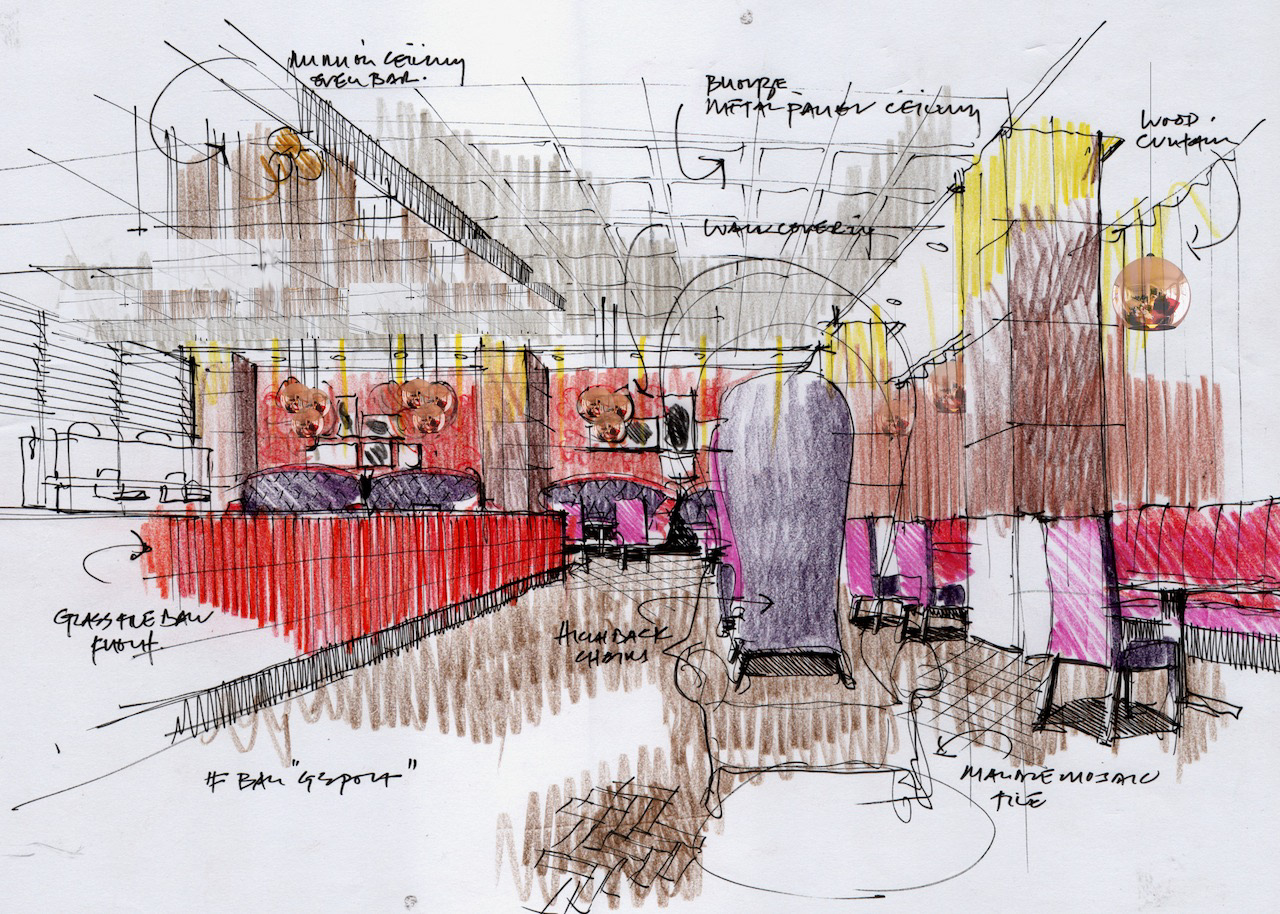 MIRROR CEILING
OVER BAR.
BRONZE
METAL PANEL CEILING
WOOD
CURTAIN
WALLCOVERING
GLASS TILE BAR
FRONT.
HIGH BACK
CHAIRS
# BAR "GSPOT"
MARBLE MOSAIC
TILE